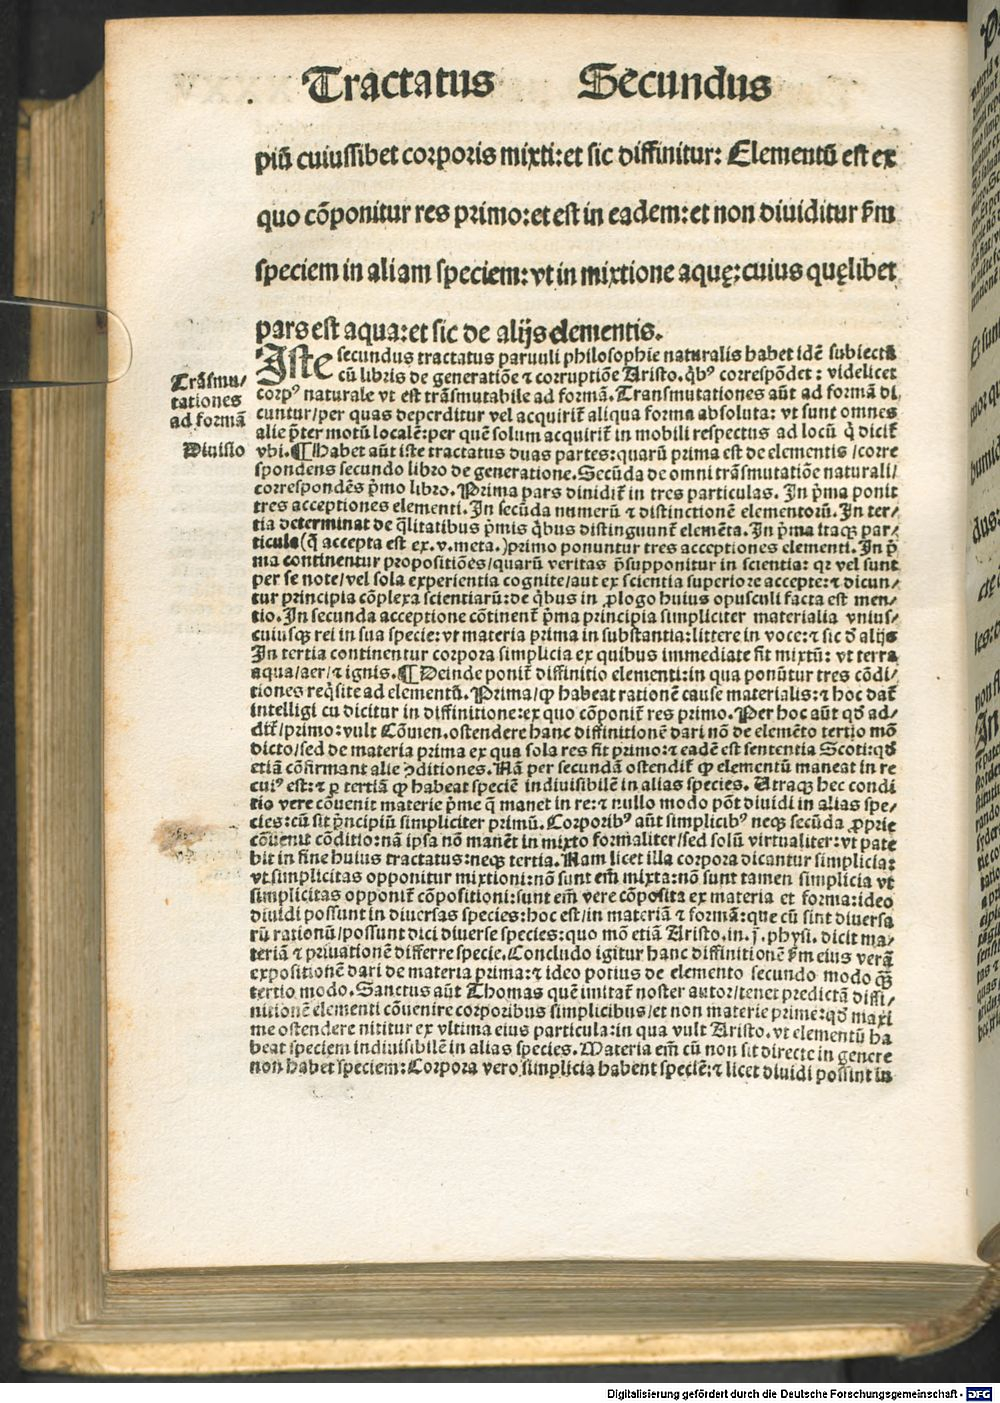 Tractatus Secundus
piū cuiuslibet corporis mixti: et sic diffinitur: Elementū est ex
quo cōponitur res primo: et est in eadem: et non diuiditur ẜm
speciem in aliam speciem: vt in mixtione aquę: cuius quęlibet
pars est aqua: et sic de alijs elementis.
Trāsmu/
tationes
ad formā
Diuisio
Iste secundus tractatus paruuli philosophie naturalis habet idē subiectū
cū libris de generatiōe ⁊ corruptiōe Aristo. q̄bꝰ correspōdet: videlicet
corpꝰ naturale vt est trāsmutabile ad formā. Transmutationes aūt ad formā di
cuntur/per quas deperditur vel acquirit̄ aliqua forma absoluta: vt sunt omnes
alie p̄ter motū localē: per quē solum acquirit̄ in mobili respectus ad locū q̄ dicit̄
vbi. ¶ Habet aūt iste tractatus duas partes: quarū prima est de elementis/corre
spondens secundo libro de generatione. Secūda de omni trāsmutatiōe naturali/
correspondēs p̄mo libro. Prima pars diuidit̄ in tres particulas. In p̄ma ponit
tres acceptiones elementi. In secūda numerū ⁊ distinctionē elementorū. In ter/
tia determinat de q̄litatibus p̄mis q̄bus distinguunt̄ elemēta. In p̄ma itaqꝫ par/
ticula (q̄ accepta est ex .v. meta.) primo ponuntur tres acceptiones elementi. In p̄
ma continentur propositiōes/quarū veritas p̄supponitur in scientia: qr vel sunt
per se note/vel sola experientia cognite/aut ex scientia superiore accepte: ⁊ dicun/
tur principia cōplexa scientiarū: de q̄bus in ꝓlogo huius opusculi facta est men/
tio. In secunda acceptione cōtinent̄ p̄ma principia simpliciter materialia vnius/
cuiusqꝫ rei in sua specie: vt materia prima in substantia: littere in voce: ⁊ sic d̄ alijs
In tertia continentur corpora simplicia ex quibus immediate fit mixtū: vt terra
aqua/aer/⁊ ignis. ¶ Deinde ponit̄ diffinitio elementi: in qua ponūtur tres cōdi/
tiones req̄site ad elementū. Prima/ꝙ habeat rationē cause materialis: ⁊ hoc dat̄
intelligi cū dicitur in diffinitione: ex quo cōponit̄ res primo. Per hoc aūt qď ad/
dit̄/primo: vult Cōmen. ostendere hanc diffinitionē dari nō de elemēto tertio mō
dicto/sed de materia prima ex qua sola res fit primo: ⁊ eadē est sententia Scoti: qď
etiā cōfirmant alie ꝯditiones. Nā per secundā ostendit̄ ꝙ elementū maneat in re
cuiꝰ est: ⁊ ꝑ tertiā ꝙ habeat speciē indiuisibilē in alias species. Utraqꝫ hec condi
tio vere cōuenit materie p̄me q̄ manet in re: ⁊ nullo modo pōt diuidi in alias spe/
cies: cū sit p̄ncipiū simpliciter primū. Corporibꝰ aūt simplicibꝰ neqꝫ secūda ꝓprie
cōuenit cōditio: nā ipsa nō manēt in mixto formaliter/sed solū virtualiter: vt pate
bit in fine huius tractatus: neqꝫ tertia. Nam licet illa corpora dicantur simplicia:
vt simplicitas opponitur mixtioni: nō sunt em̄ mixta: nō sunt tamen simplicia vt
simplicitas opponit̄ cōpositioni: sunt em̄ vere cōposita ex materia et forma: ideo
diuidi possunt in diuersas species: hoc est/in materiā ⁊ formā: que cū sint diuersa
rū rationū/possunt dici diuerse species: quo mō etiā Aristo. in .j. physi. dicit ma/
teriā ⁊ priuationē differre specie. Concludo igitur hanc diffinitionē ẜm eius verā
expositionē dari de materia prima: ⁊ ideo potius de elemento secundo modo qꝫ̄
tertio modo. Sanctus aūt Thomas quē imitat̄ noster autor/tenet predictā diffi/
nitionē elementi cōuenire corporibus simplicibus/et non materie prime: qď maxi
me ostendere nititur ex vltima eius particula: in qua vult Aristo. vt elementū ha
beat speciem indiuisibilē in alias species. Materia em̄ cū non sit directe in genere
non habet speciem: Corpora vero simplicia habent speciē: ⁊ licet diuidi possint in
Digitalisierung gefördert durch die Deutsche Forschungsgemeinschaft - DFG